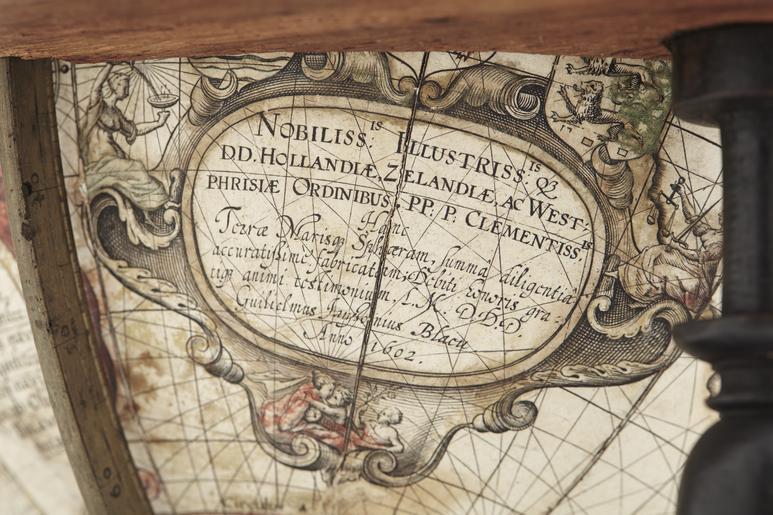 NOBILISS:^IS ILLUSTRISS:^IS Q̃3
D.D. HOLLANDIÆ, ZELANDIÆ, AC WEST-
PHRISIÆ ORDINIBUS: PP. P. CLEMENTISS:^IS
Hanc
Terræ Marisq Sphæram, summa diligentia
accuratissime fabricatam; debiti honoris gra:
tiq animi testimonium, L. M. D. D.
Guilielmus Blaeu
Anno 1602.